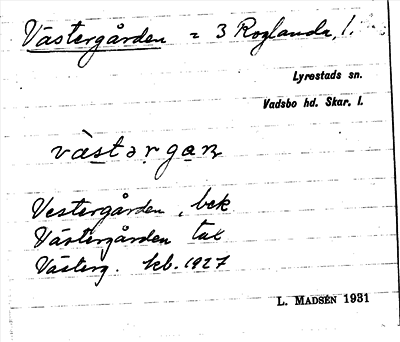 Västergården = 3 Roglanda, l.
Lyrestads sn.
Vadsbo hd. Skar. l.
vàstərgaɳ
Vestergården, bek
Västergården tal
Västerg. kb. 1927
L. MADSÉN 1931